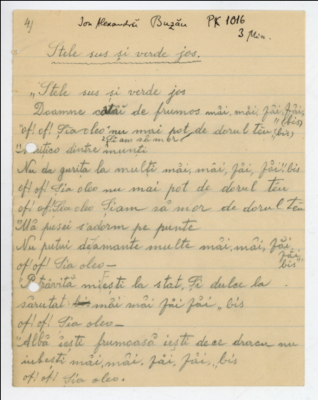 4)
Ion Alexandru Buzău PK 1016
3 Min.
Stele sus și verde jos.
"Stele sus și verde jos
Doamne cât îi de frumos măi, măi, făi, făi,
"of! of! Lia oleo" nu mai pot de dorul tău (bis)
Și am să mor
dintre munți
Nu de gurița la mulți măi, măi, făi, făi" bis
of! of! Lia oleo nu mai pot de dorul tău
of! of! Lia oleo Și am să mor de dorul tău
"Mă pusei s'adorm pe punte
Nu putui dămante multe măi, măi, făi, făi,
bis
of! of! Lia oleo —
miești la stat, Și dulce la
sărutat măi măi făi făi „ bis
of! of! Lia oleo —
"Albă iești frumoasă iești dece dracu nu
iubești măi, măi, făi, făi, „ bis
of! of! Lia oleo.